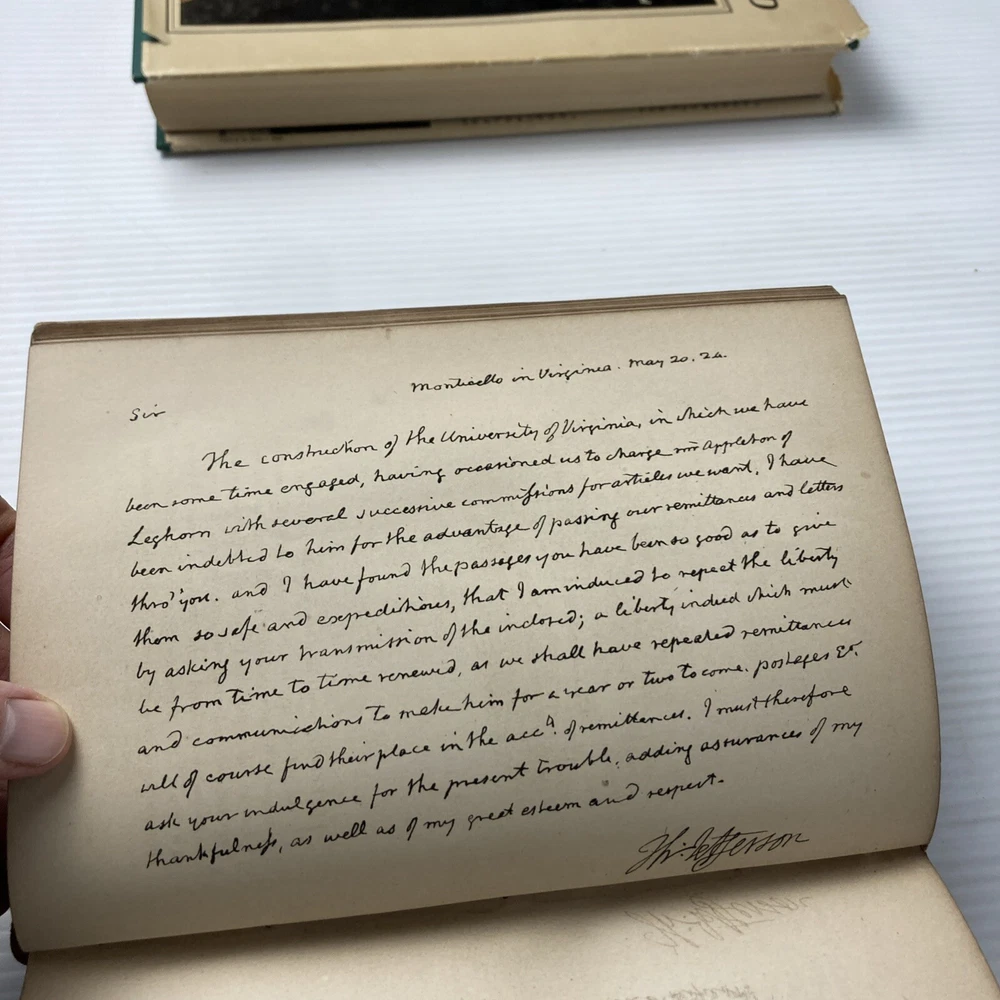 Monticello in Virginia. May 20. 24.
Sir
The construction of the University of Virginia, in which we have
been some time engaged, having occasioned us to charge mr Appleton of
Leghorn with several successive commissions for articles we want, I have
been indebted to him for the advantage of passing our remittances and letters
thro' you. and I have found the passages you have been so good as to give
them so safe and expeditious, that I am induced to repeat the liberty
by asking your transmission of the inclosed; a liberty indeed which must
be from time to time renewed, as we shall have repeated remittances
and communications to make him for a year or two to come. postages &c.
will of course find their place in the acct. of remittances. I must therefore
ask your indulgence for the present trouble, adding assurances of my
thankfulness, as well as of my great esteem and respect.
Th: Jefferson